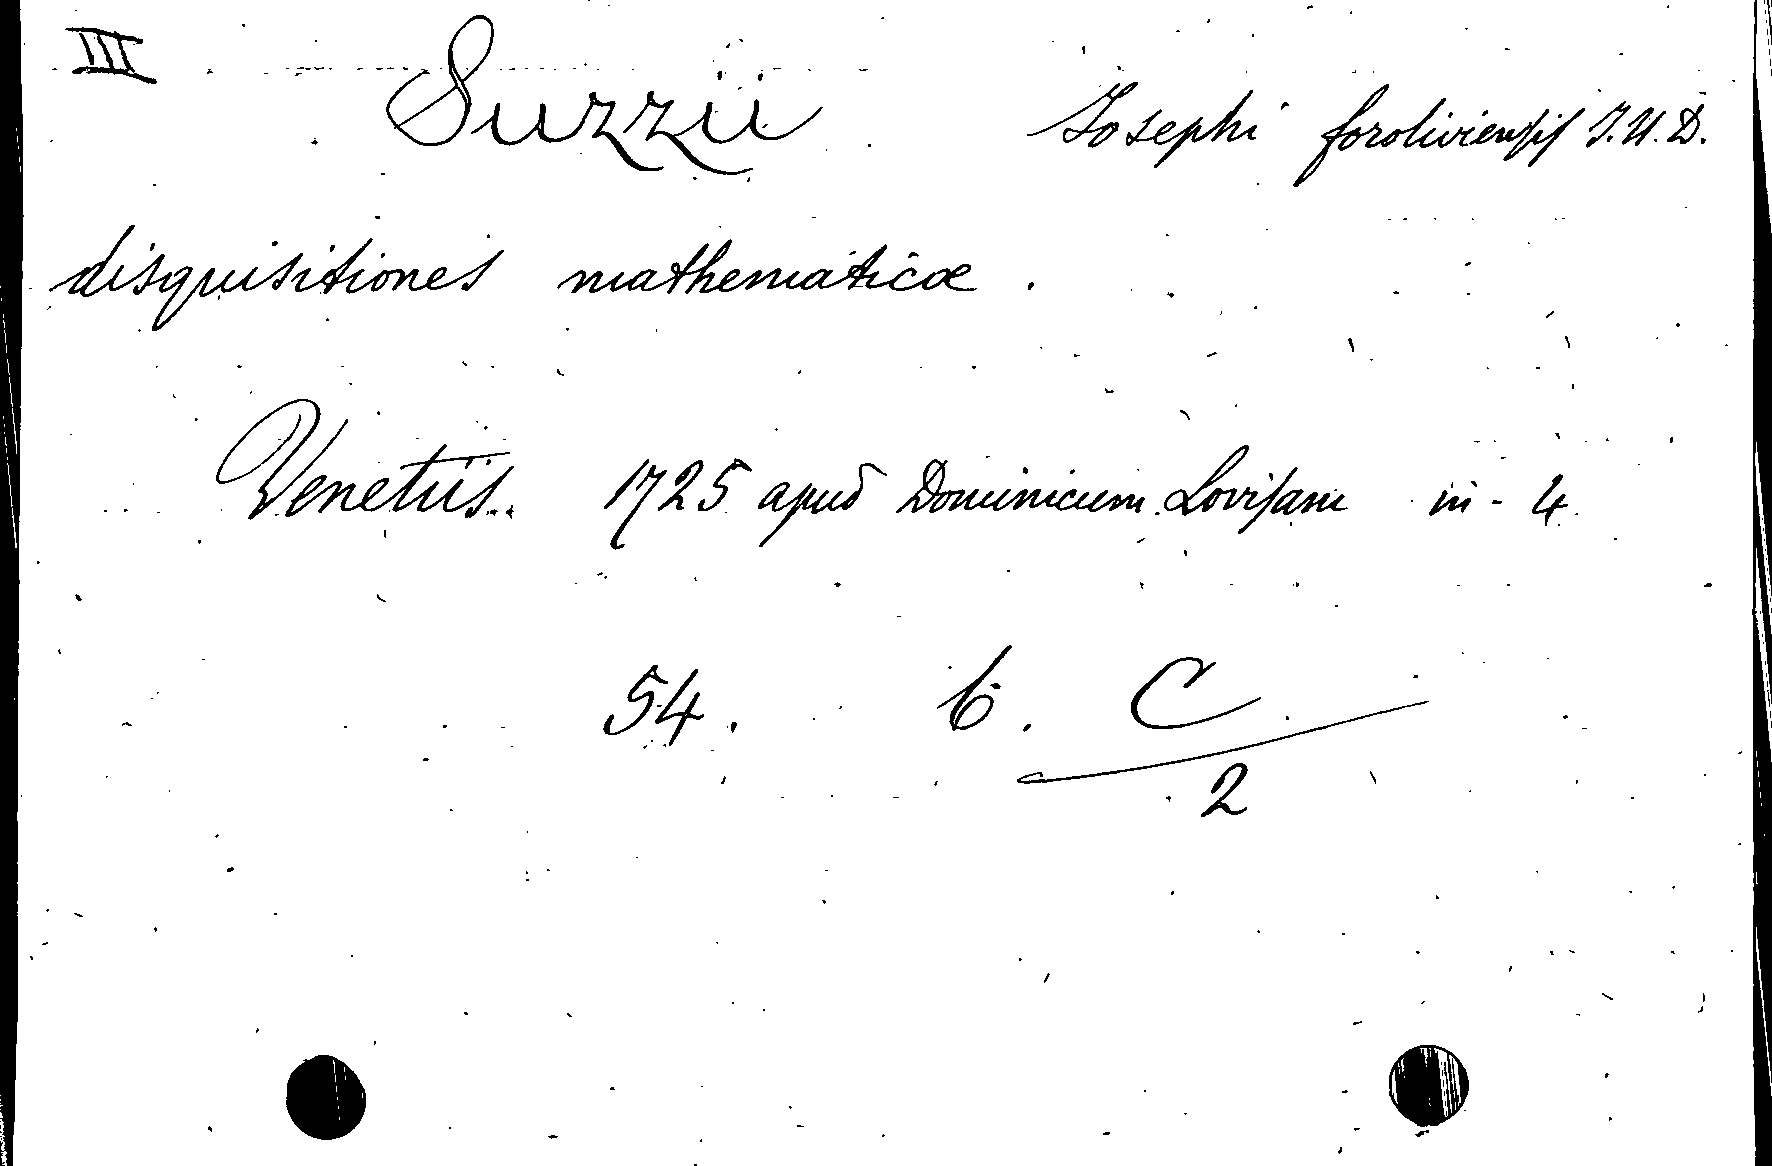 III Suzzii Iosephi foroliviensis I.U.D.
disquisitiones mathematicæ.
Venetiis. 1725 apud Dominicum Lovisam in-4
54. 6. C
2